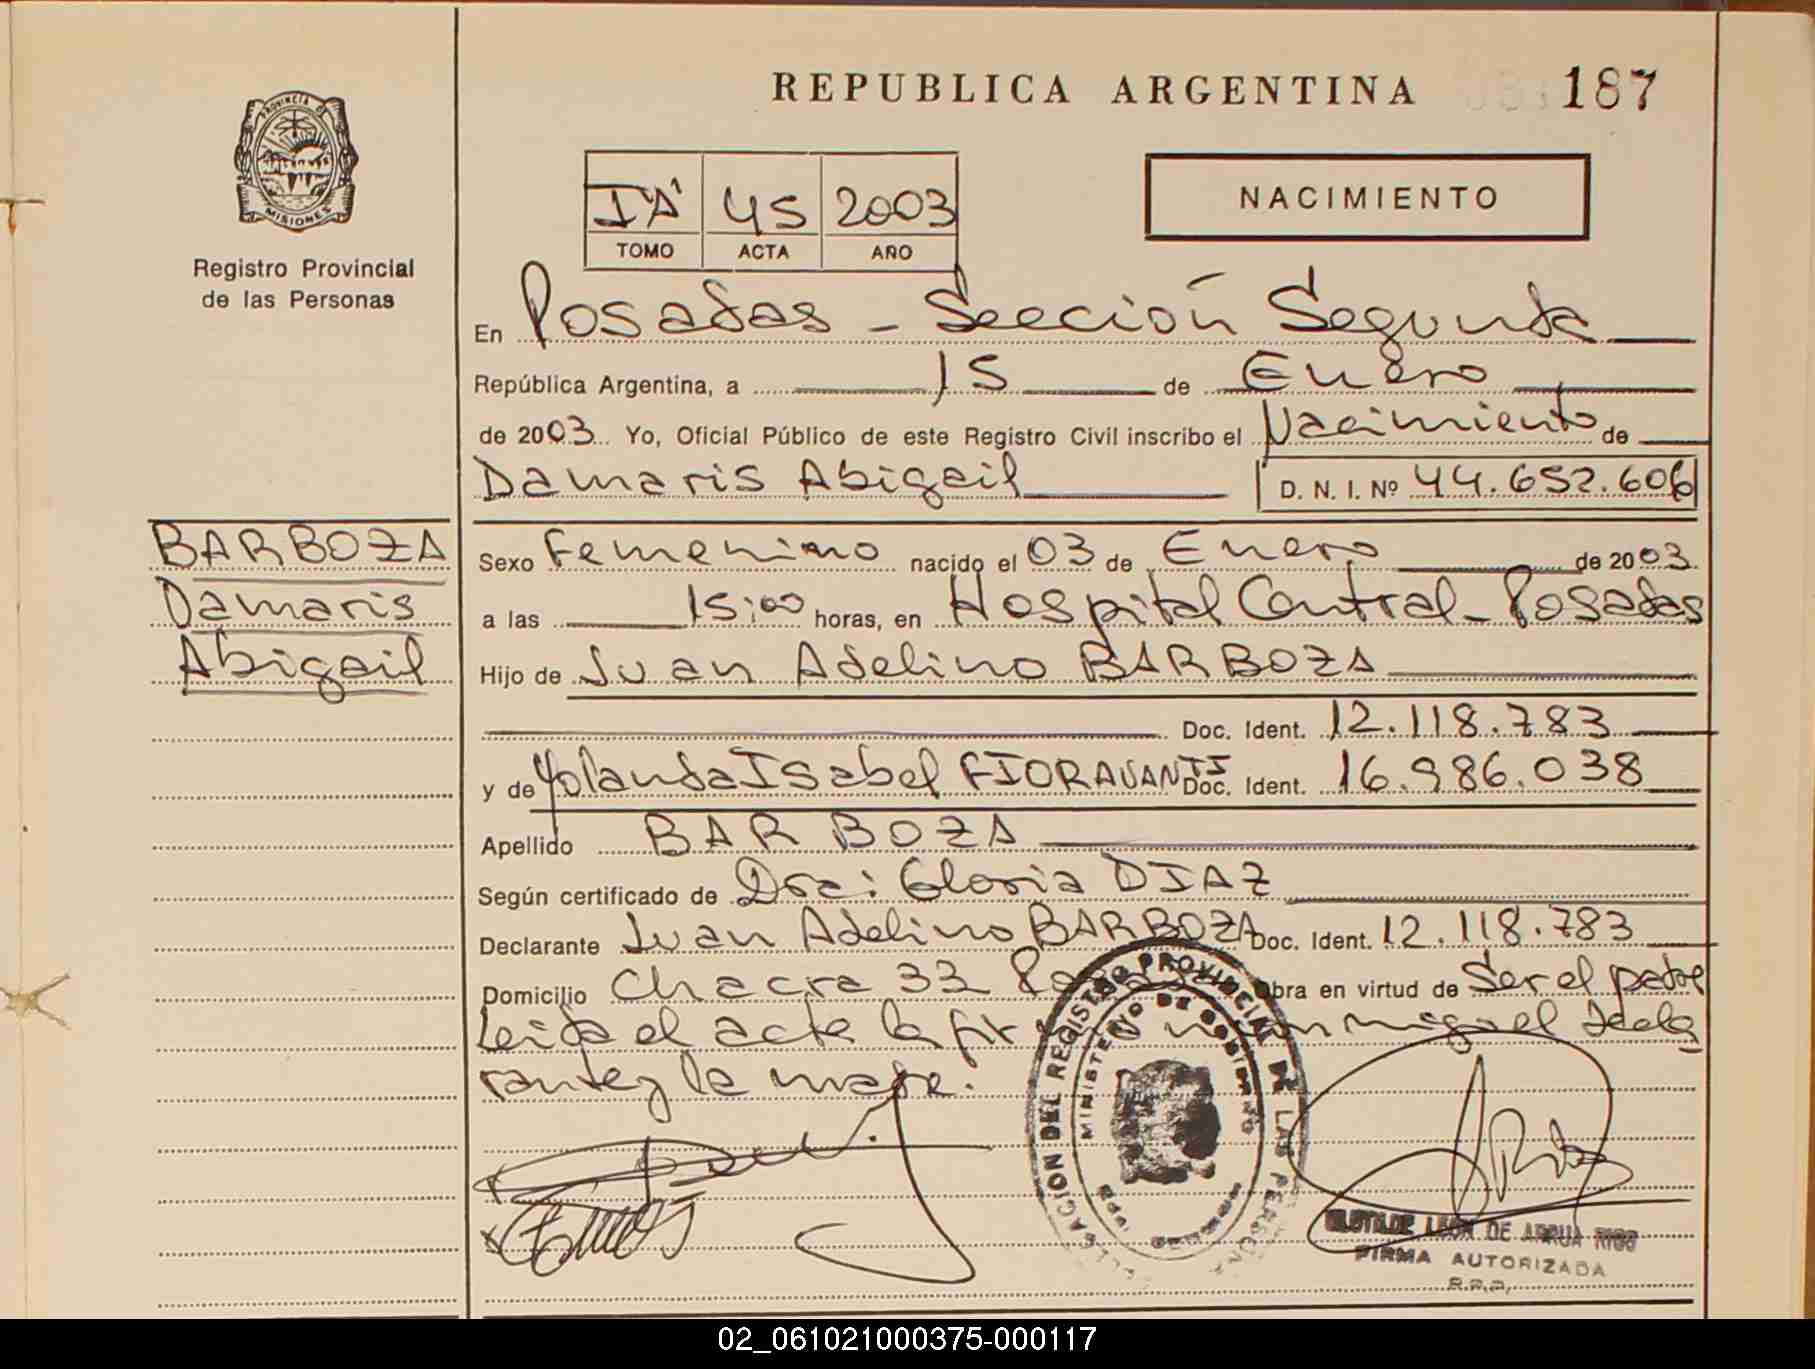 REPUBLICA ARGENTINA 187
PROVINCIA DE
MISIONES
Registro Provincial
de las Personas
IA' 45 2003
TOMO ACTA AÑO
NACIMIENTO
En Posadas - Sección Segunda
República Argentina, a 15 de Enero
de 2003 Yo, Oficial Público de este Registro Civil inscribo el Nacimiento de
Damaris Abigail D. N. I. Nº 44.652.606
BARBOZA
Damaris
Abigail
Sexo Femenino nacido el 03 de Enero de 2003
a las 15:00 horas, en Hospital Central - Posadas
Hijo de Juan Adelino BARBOZA
Doc. Ident. 12.118.783
y de Yolanda Isabel FIORAVANTI Doc. Ident. 16.986.038
Apellido BARBOZA
Según certificado de Dra: Gloria DIAZ
Declarante Juan Adelino BARBOZA Doc. Ident. 12.118.783
Domicilio Chacra 32 Posadas Obra en virtud de Ser el padre
Leida el acta la fir conmigo el decla
rante y la madre.
REGISTRO PROVINCIAL DE LAS PERSONAS
MINISTERIO DE GOBIERNO
CLOTILDE LEON DE ARRUA RIOS
FIRMA AUTORIZADA
R.P.P.
02_061021000375-000117